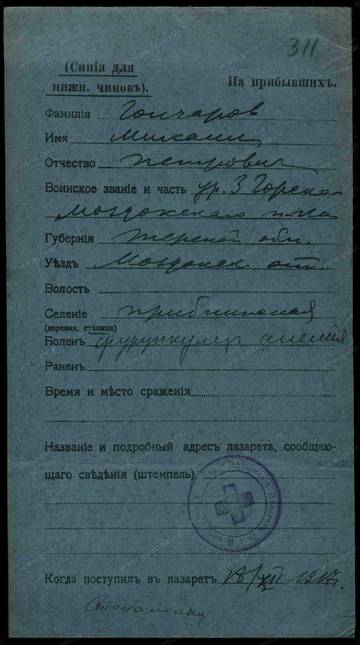 311
(Синія для
нижн. чиновъ).
На прибывшихъ.
Фамилія Гончаров
Имя Михаил
Отчество Петрович
Воинское званіе и часть ур. 3 Горско
Моздокского п-ка
Губернія Терской обл.
Уѣздъ Моздокск. от.
Волость
Селеніе
(деревня, станица)
Боленъ фурункулы
Раненъ
Время и мѣсто сраженія
Названіе и подробный адресъ лазарета, сообщаю-
щаго свѣдѣнія (штемпель)
Когда поступилъ въ лазаретъ 18/XII 1917г.